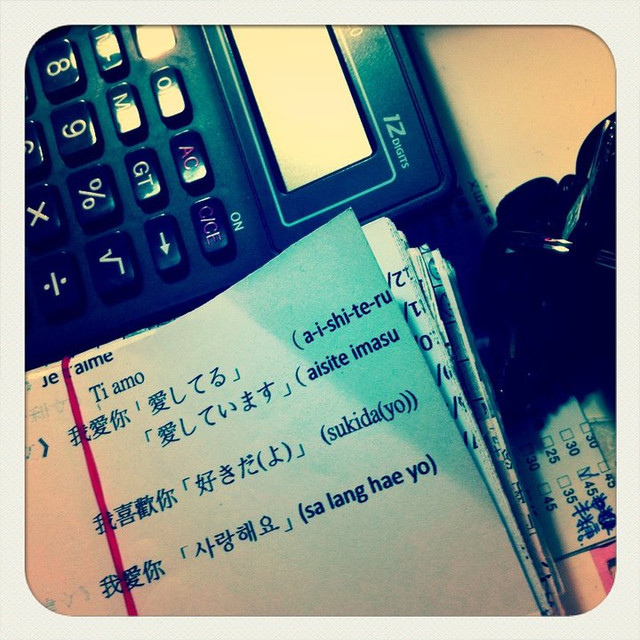 8
9
M
%
GT
AC
×
√
→
C/CE
÷
ON
12 DIGITS
Je t'aime
Ti amo
我愛你「愛してる」 (a-i-shi-te-ru
「愛しています」(aisite imasu
我喜歡你「好きだ(よ)」 (sukida(yo))
我愛你 「사랑해요」(sa lang hae yo)
30
25
30
45
30
45
35
45